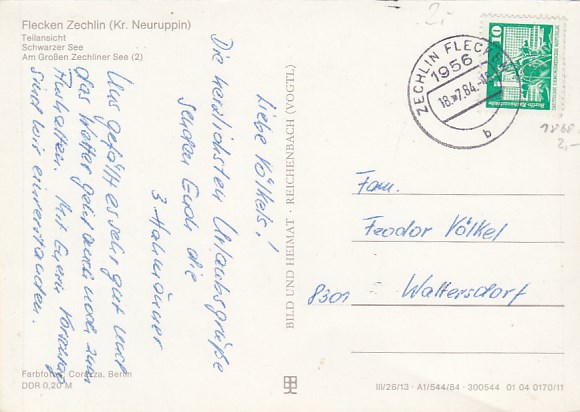 Flecken Zechlin (Kr. Neuruppin)
Teilansicht
Schwarzer See
Am Großen Zechliner See (2)
Liebe Völkels!
Die herzlichsten Urlaubsgrüße
senden Euch die
3
Uns gefällt es sehr gut und
das Wetter geht auch noch zum
Aushalten. Mit Eurem Vorschlag
sind wir einverstanden.
Farbfotos: Cordza, Berlin
DDR 0,20 M
BILD UND HEIMAT · REICHENBACH (VOGTL)
2,-
ZECHLIN FLECKEN
1956
18.-7.84.-1
b
10
1 V 65
2,-
Fam.
Feodor Völkel
8301 Waltersdorf
III/26/13 · A1/544/84 · 300544 01 04 0170/11